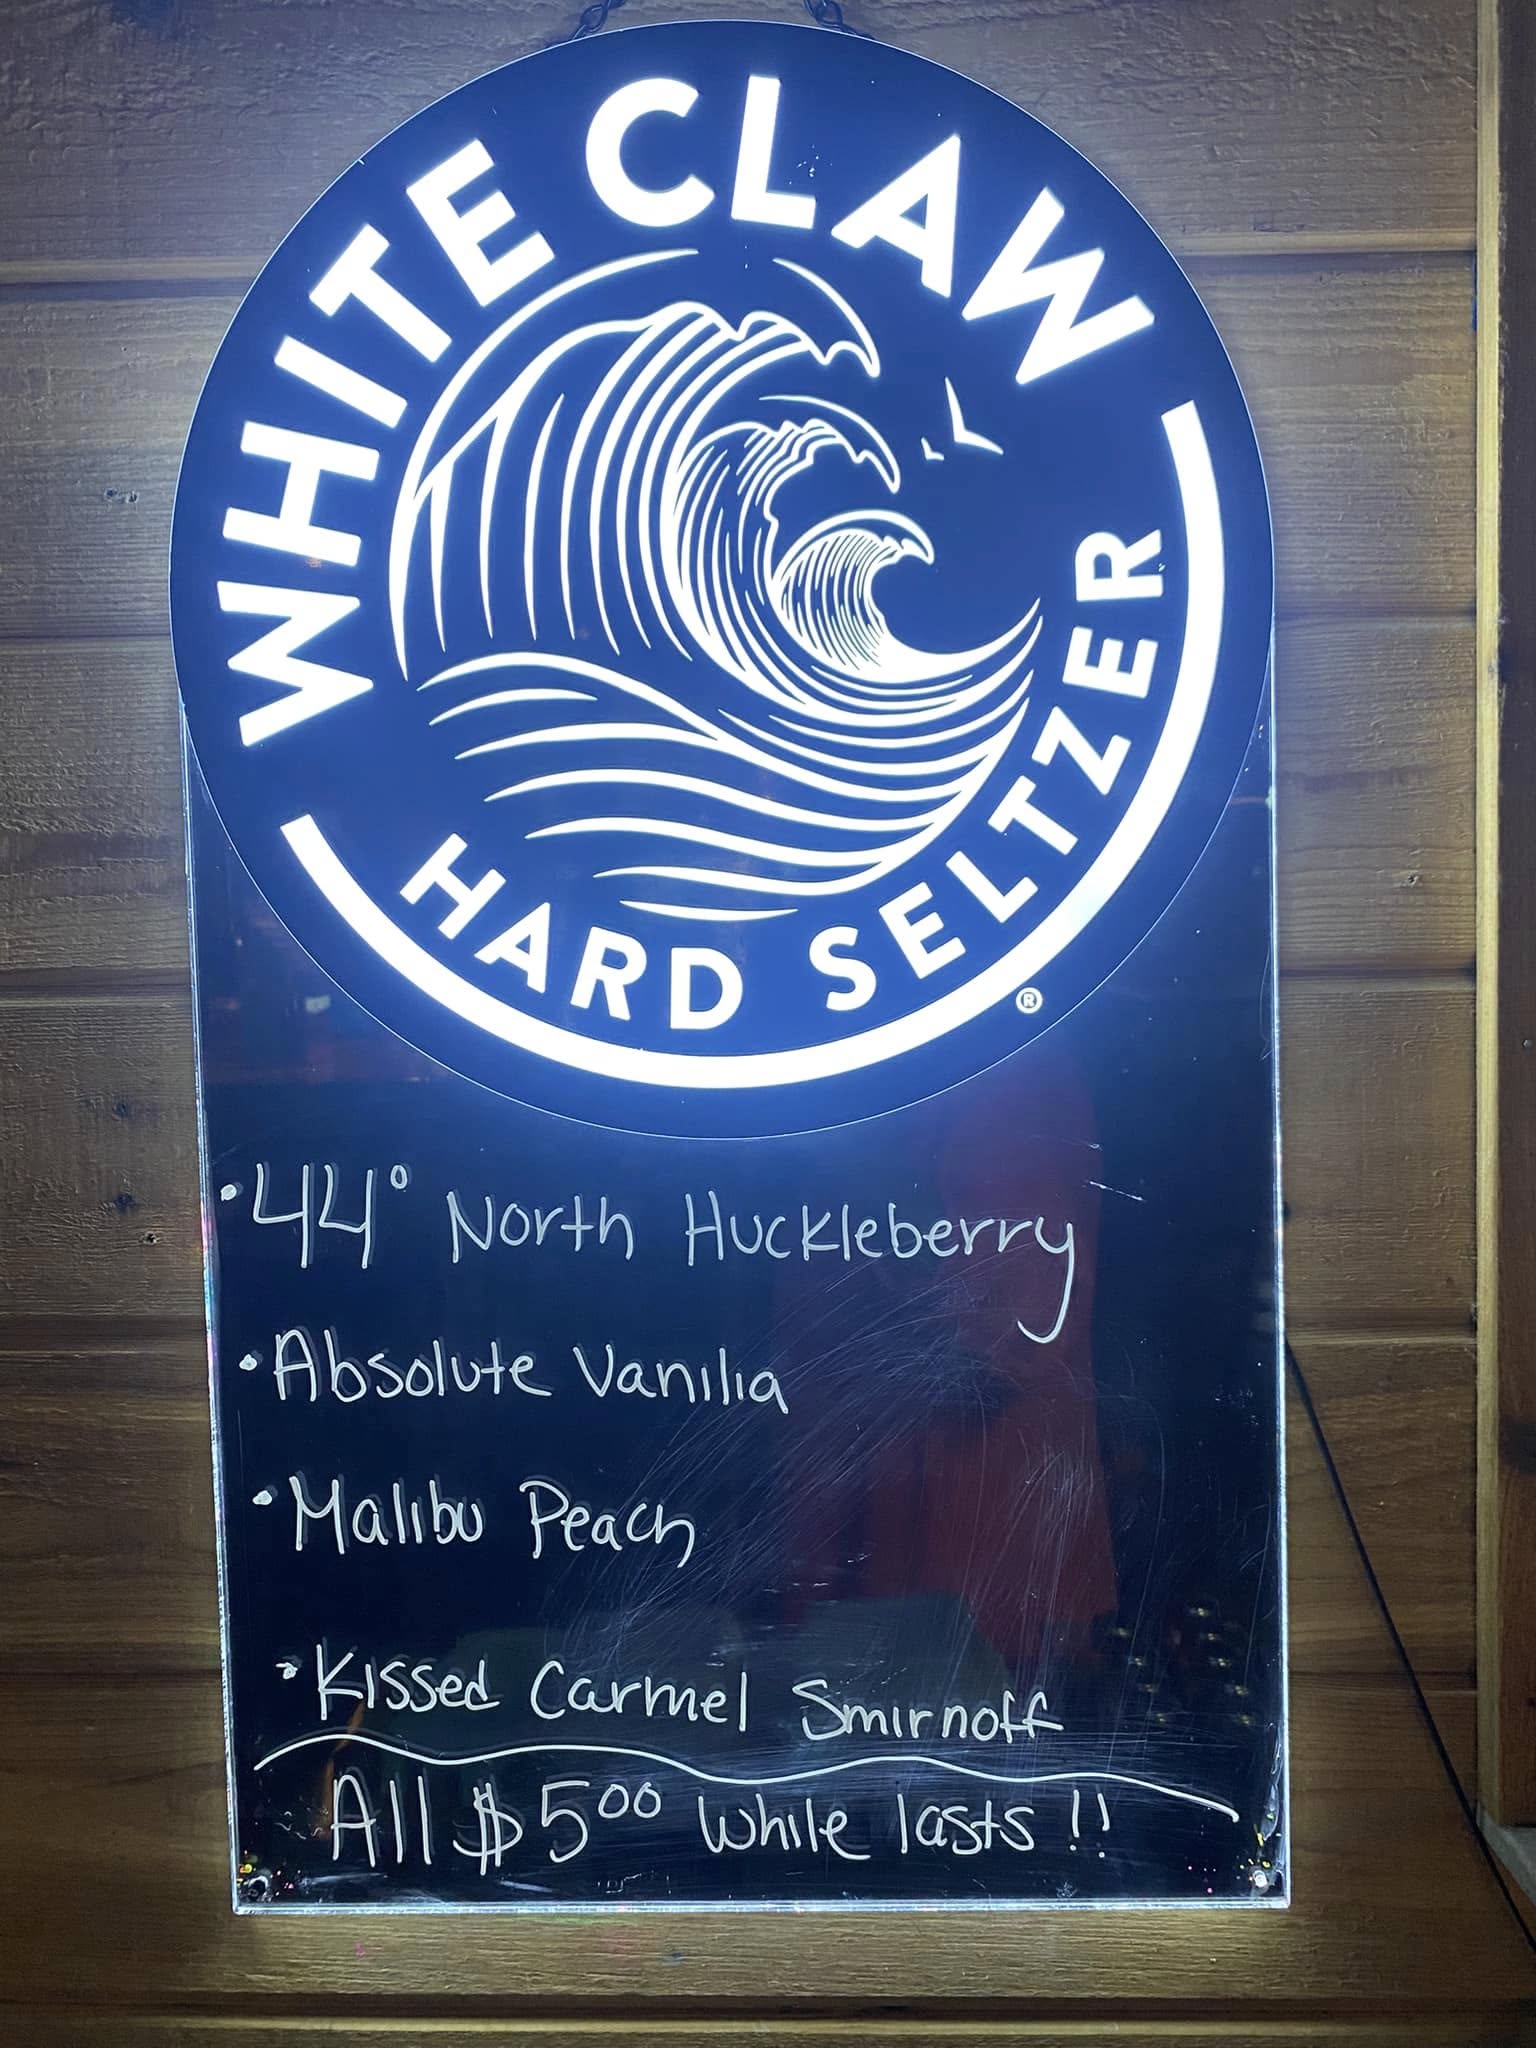 WHITE CLAW
HARD SELTZER
®
•44° North Huckleberry
•Absolute Vanilia
•Malibu Peach
•Kissed Carmel Smirnoff
All $5.00 while lasts!!